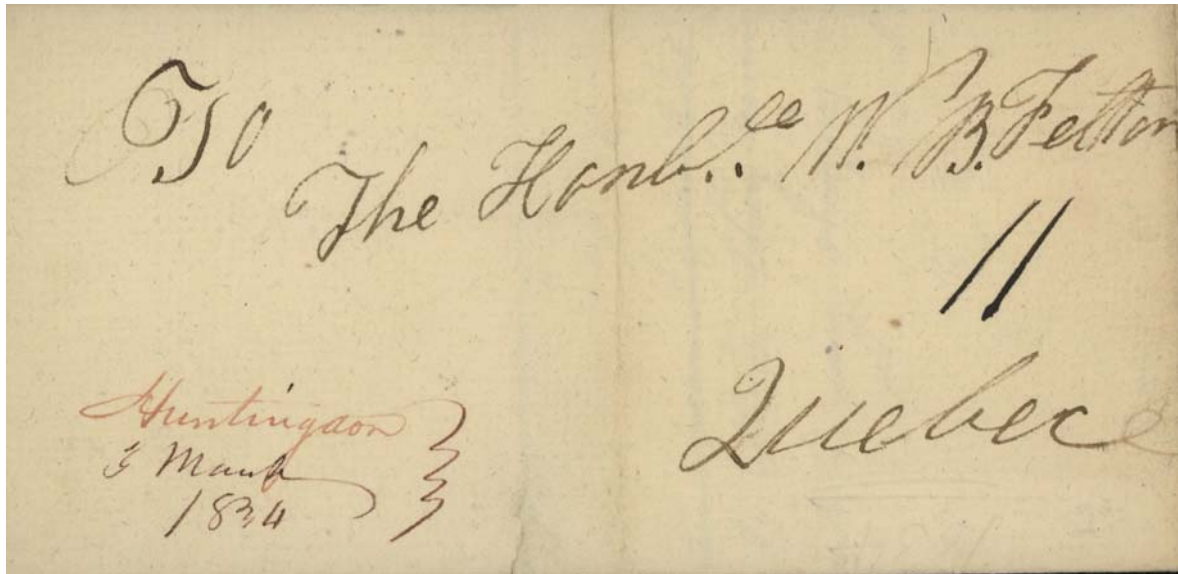 To
The Honb.le W. B. Felton
11
Quebec
Huntingdon
3 March
1834